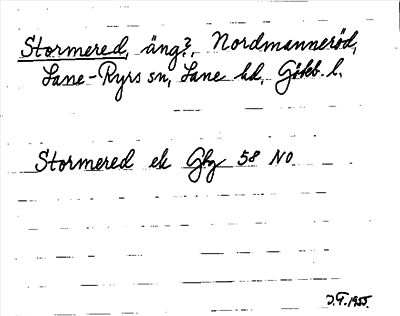 Stormered, äng?, Nordmannerød,
Lane-Ryrs sn, Lane hd, Gbkb. l.
Stormered ek Gbg 58 NO
J.G. 1955.